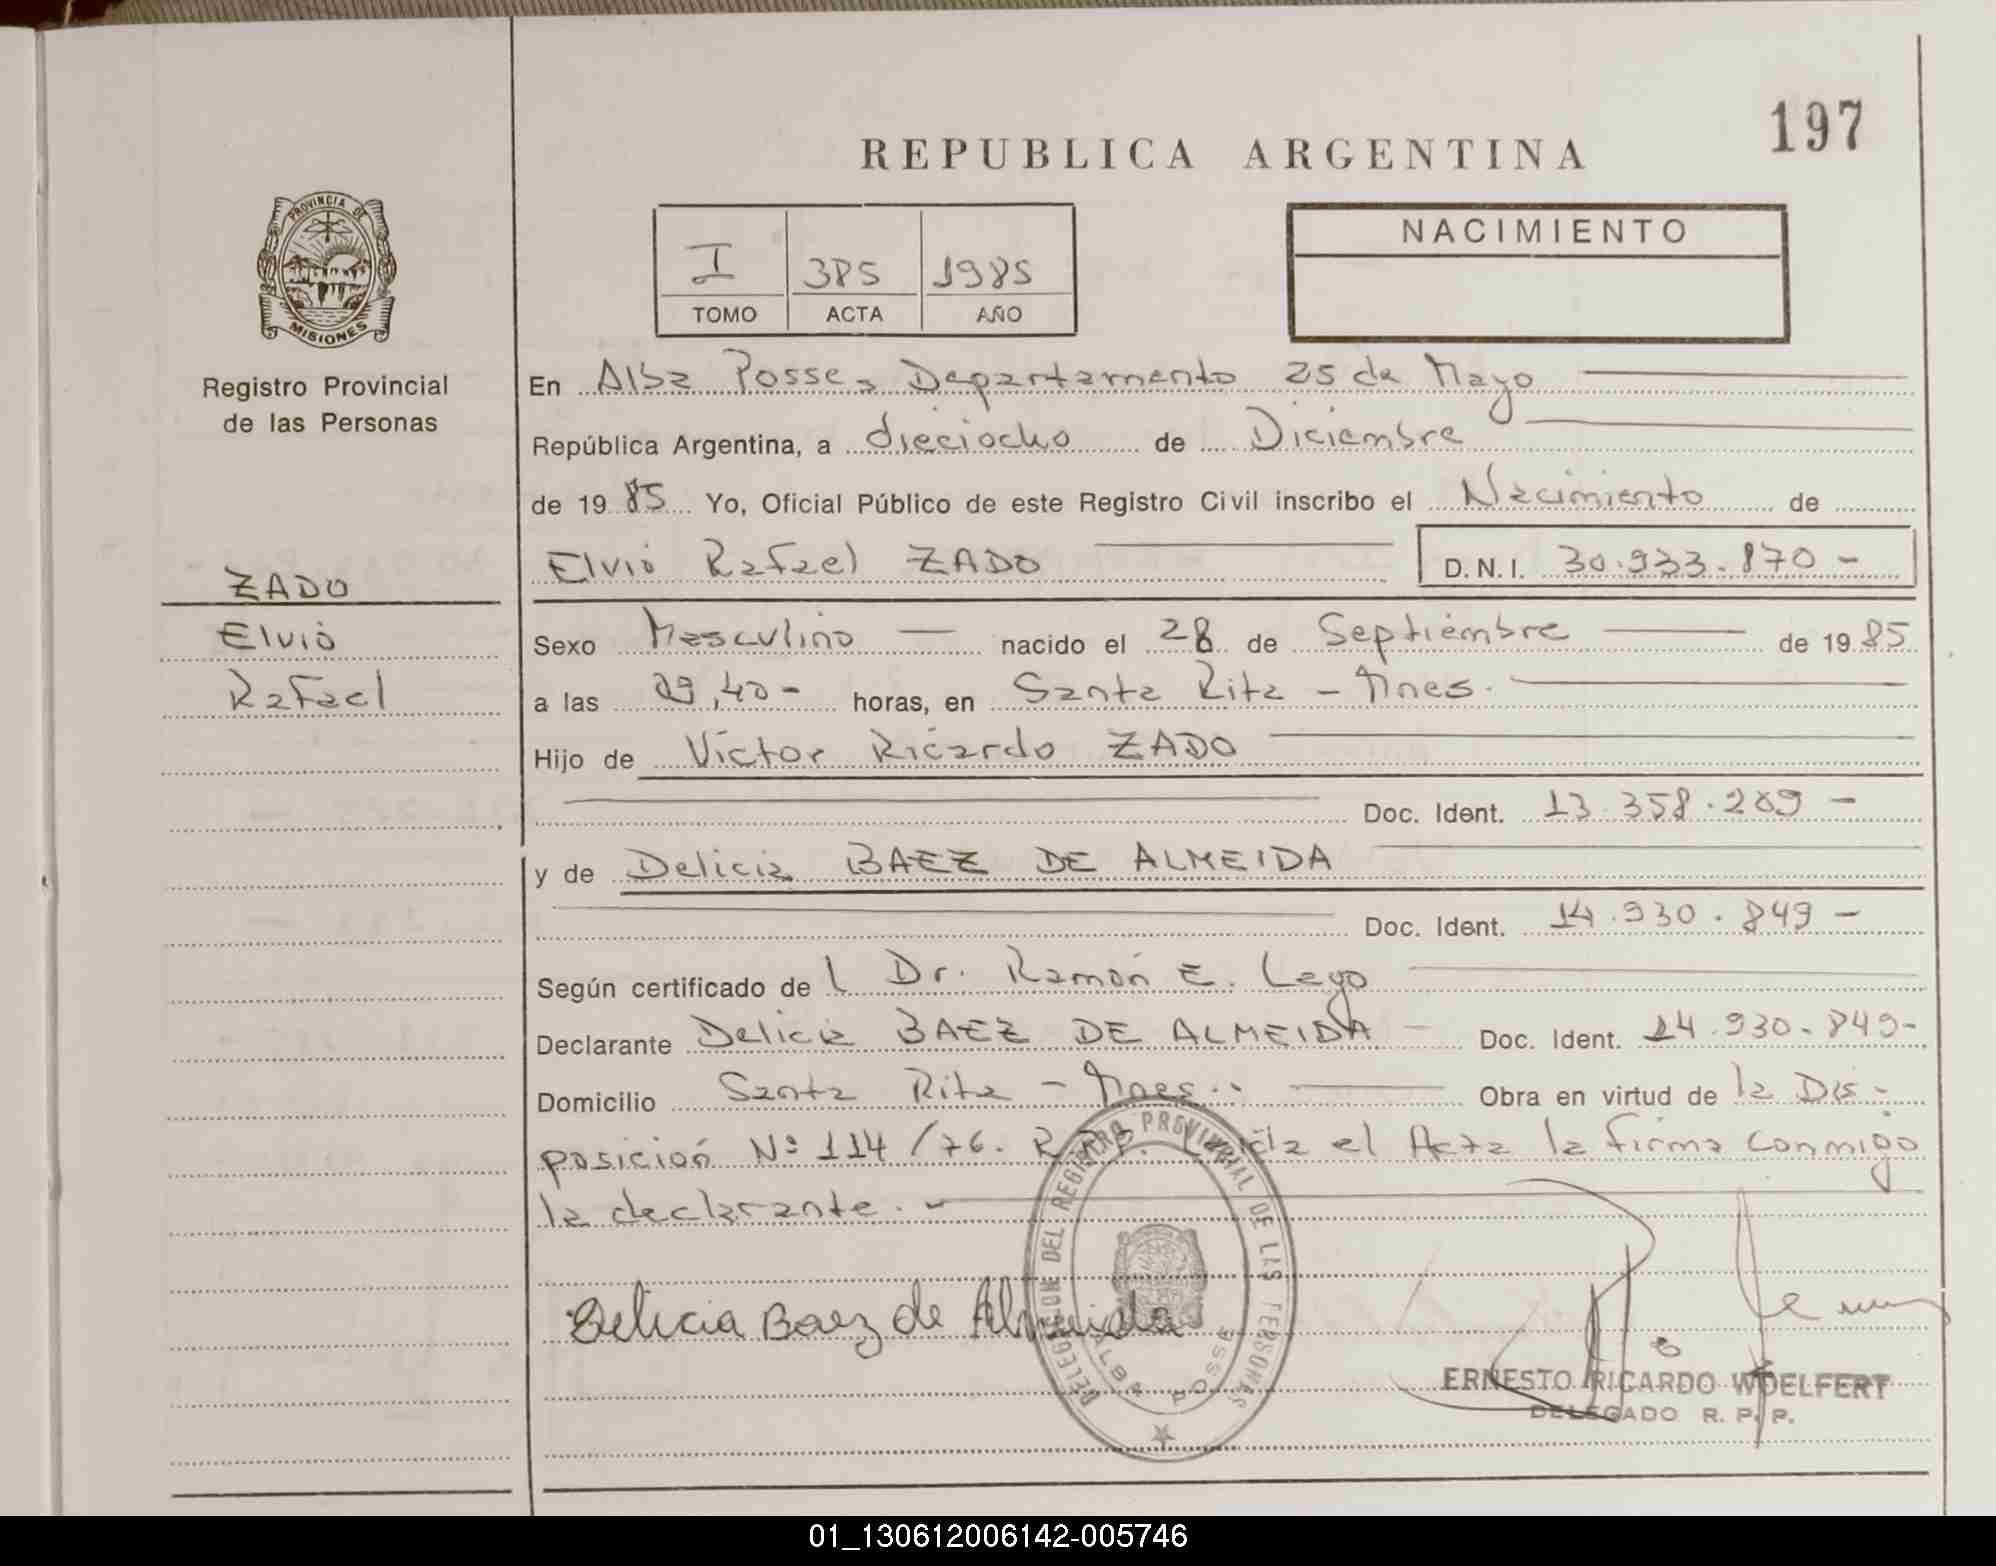 197
REPUBLICA ARGENTINA
PROVINCIA DE
MISIONES
Registro Provincial
de las Personas
I 385 1985
TOMO ACTA AÑO
NACIMIENTO
En Alba Posse, Departamento 25 de Mayo
República Argentina, a dieciocho de Diciembre
de 1985 Yo, Oficial Público de este Registro Civil inscribo el Nacimiento de
Elvio Rafael ZADO D.N.I. 30.933.870-
ZADO
Elvio
Rafael
Sexo Masculino nacido el 28 de Septiembre de 1985
a las 09,40- horas, en Santa Rita - Mnes.
Hijo de Víctor Ricardo ZADO
Doc. Ident. 13.358.289-
y de Delicia BAEZ DE ALMEIDA
Doc. Ident. 14.930.849-
Según certificado del Dr. Ramón E.
Declarante Delicia BAEZ DE ALMEIDA - Doc. Ident. 14.930.849-
Domicilio Santa Rita - Mnes.- Obra en virtud de la Dis-
posición Nº 114/76. R.P.P. el Acta la firma conmigo
la declarante.-
Delicia Baez de Almeida
DELEGACION DEL REGISTRO PROVINCIAL DE LAS PERSONAS
ALBA POSSE
ERNESTO RICARDO WOELFERT
DELEGADO R. P. P.
01_130612006142-005746